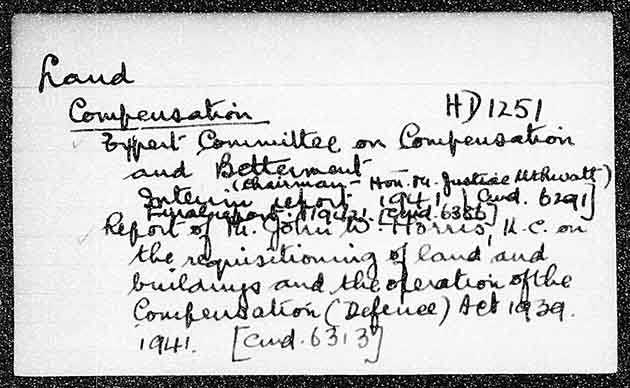 Land
Compensation HD1251
Expert Committee on Compensation
and Betterment
(Chairman - Hon. Mr. Justice Uthwatt)
Interim report 1941 [Cmd. 6291]
Final report. 1942. [Cmd 6386]
Report of Mr. John W. Morris, K.C. on
the requisitioning of land and
buildings and the operation of the
Compensation (Defence) Act 1939.
1941. [Cmd. 6313]